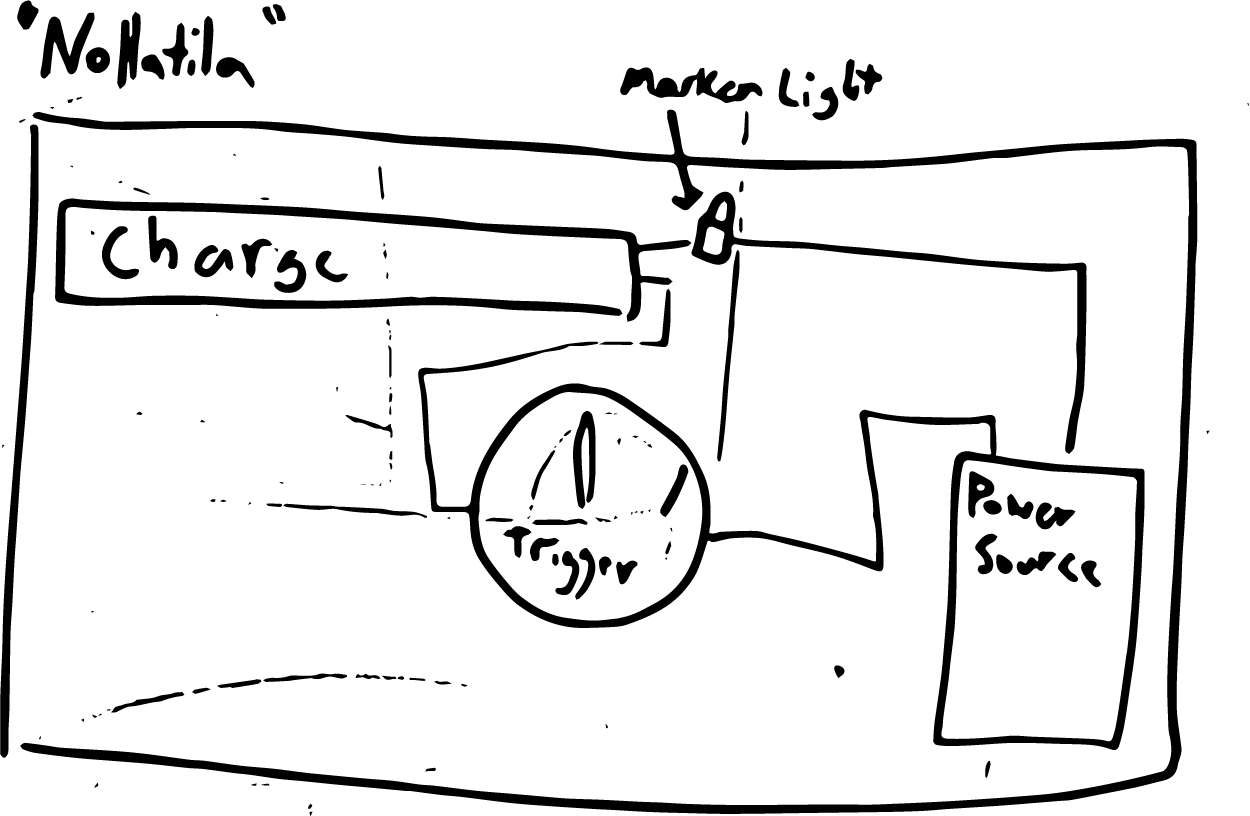 "Nollatila"
Marker Light
Charge
Trigger
Power
Source